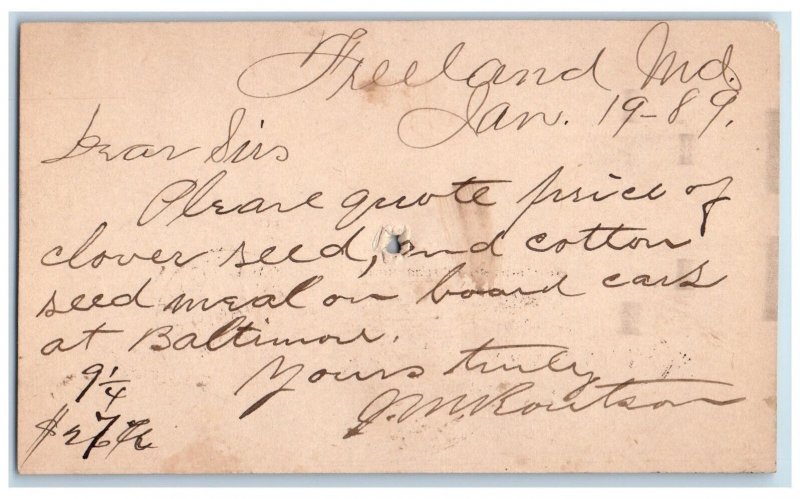 Freeland Md.
Jan. 19-89.
Dear Sirs
Please quote price of
clover seed, and cotton
seed meal on board cars
at Baltimore.
Yours truly
J. M. Routson
9 1/4